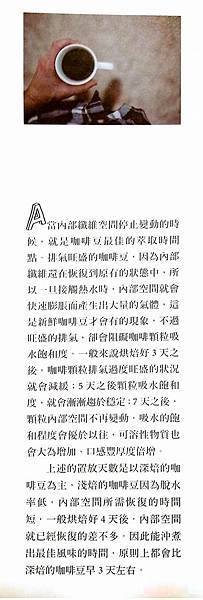 A
當內部纖維空間停止變動的時
候，就是咖啡豆最佳的萃取時間
點。排氣旺盛的咖啡豆，因為內部
纖維還在恢復到原有的狀態中，所
以一旦接觸熱水時，內部空間就會
快速膨脹而產生出大量的氣體。這
是新鮮咖啡豆才會有的現象。不過
旺盛的排氣，卻會阻礙咖啡顆粒吸
水飽和度。一般來說烘焙好3天之
後，咖啡顆粒排氣過度旺盛的狀況
就會減緩；5天之後顆粒吸水飽和
度，就會漸漸趨於穩定；7天之後，
顆粒內部空間不再變動，吸水的飽
和程度會優於以往，可溶性物質也
會大為增加，口感豐厚度倍增。
上述的置放天數是以深焙的咖
啡豆為主，淺焙的咖啡豆因為脫水
率低，內部空間所需恢復的時間
短，一般烘焙好4天後，內部空間
就已經恢復的差不多。因此能沖煮
出最佳風味的時間，原則上都會比
深焙的咖啡豆早3天左右。